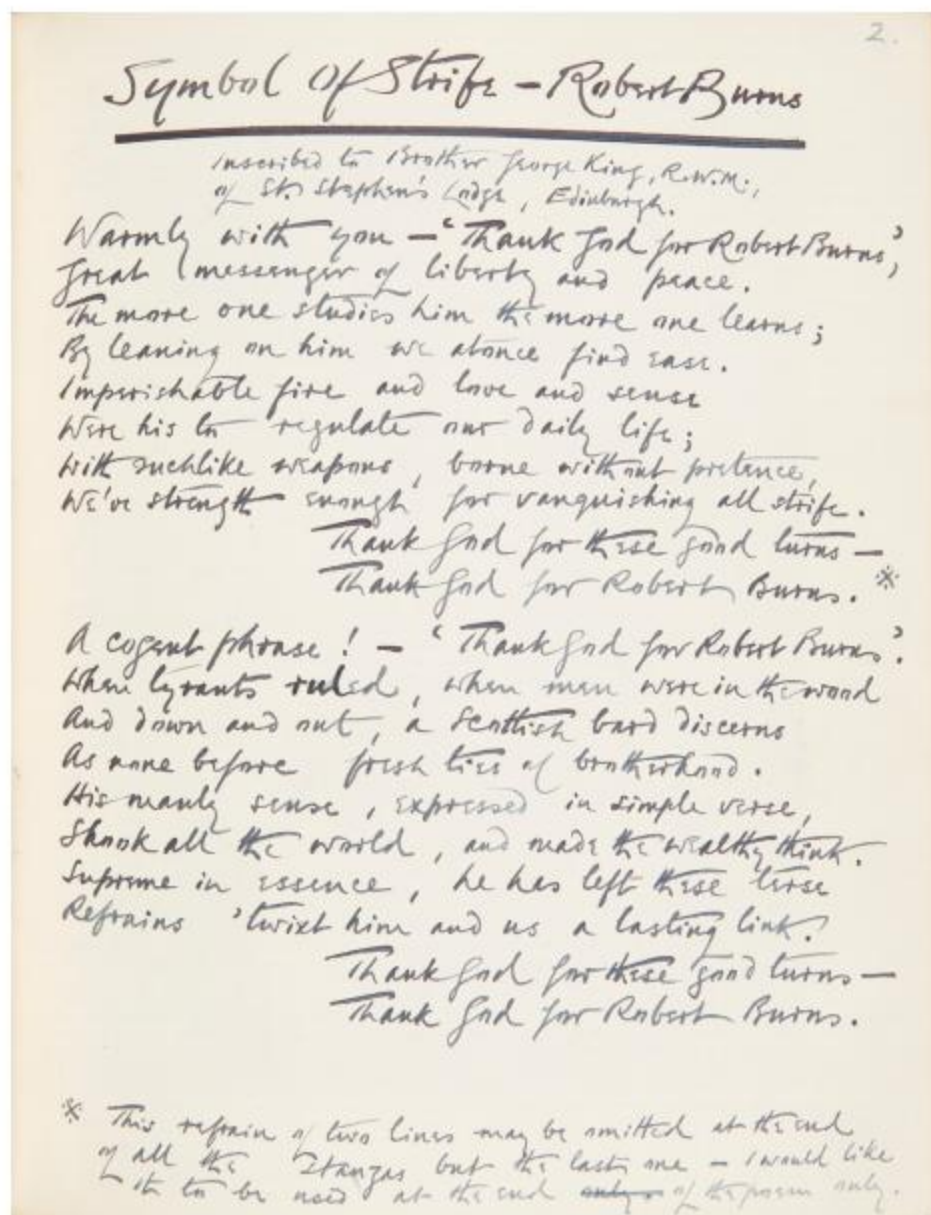 2.
Symbol Of Strife – Robert Burns
Inscribed to Brother George King, R.W.M.,
of St. Stephen's Lodge, Edinburgh.
Warmly with you – 'Thank God for Robert Burns',
Great messenger of liberty and peace.
The more one studies him the more one learns;
By leaning on him we atonce find ease.
Imperishable fire and love and sense
Were his to regulate our daily life;
With suchlike weapons, borne without pretence,
We've strength enough for vanquishing all strife.
Thank God for these good turns –
Thank God for Robert Burns. ※
A cogent phrase! – 'Thank God for Robert Burns'.
When tyrants ruled, when men were in the wood
And down and out, a Scottish bard discerns
As none before fresh ties of brotherhood.
His manly sense, expressed in simple verse,
Shook all the world, and made the wealthy think.
Supreme in essence, he has left these terse
Refrains 'twixt him and us a lasting link!
Thank God for these good turns –
Thank God for Robert Burns.
※ This refrain of two lines may be omitted at the end
of all the Stanzas but the last one – I would like
it to be used at the end only of the poem only.